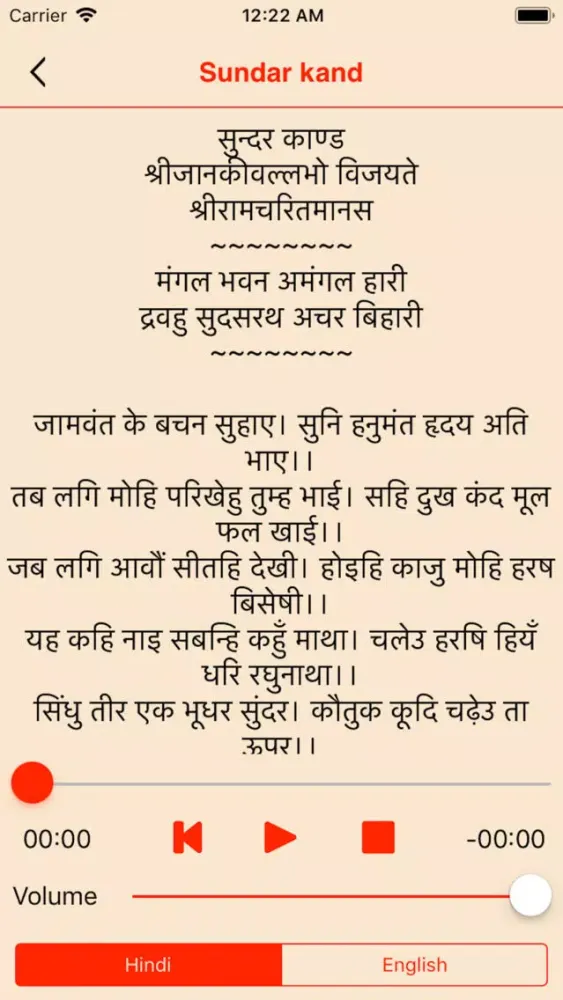 Carrier 12:22 AM
Sundar kand
सुन्दर काण्ड
श्रीजानकीवल्लभो विजयते
श्रीरामचरितमानस
~~~~~~~~
मंगल भवन अमंगल हारी
द्रवहु सुदसरथ अचर बिहारी
~~~~~~~~
जामवंत के बचन सुहाए। सुनि हनुमंत हृदय अति
भाए।।
तब लगि मोहि परिखेहु तुम्ह भाई। सहि दुख कंद मूल
फल खाई।।
जब लगि आवौं सीतहि देखी। होइहि काजु मोहि हरष
बिसेषी।।
यह कहि नाइ सबन्हि कहुँ माथा। चलेउ हरषि हियँ
धरि रघुनाथा।।
सिंधु तीर एक भूधर सुंदर। कौतुक कूदि चढ़ेउ ता
ऊपर।।
00:00 -00:00
Volume
Hindi English